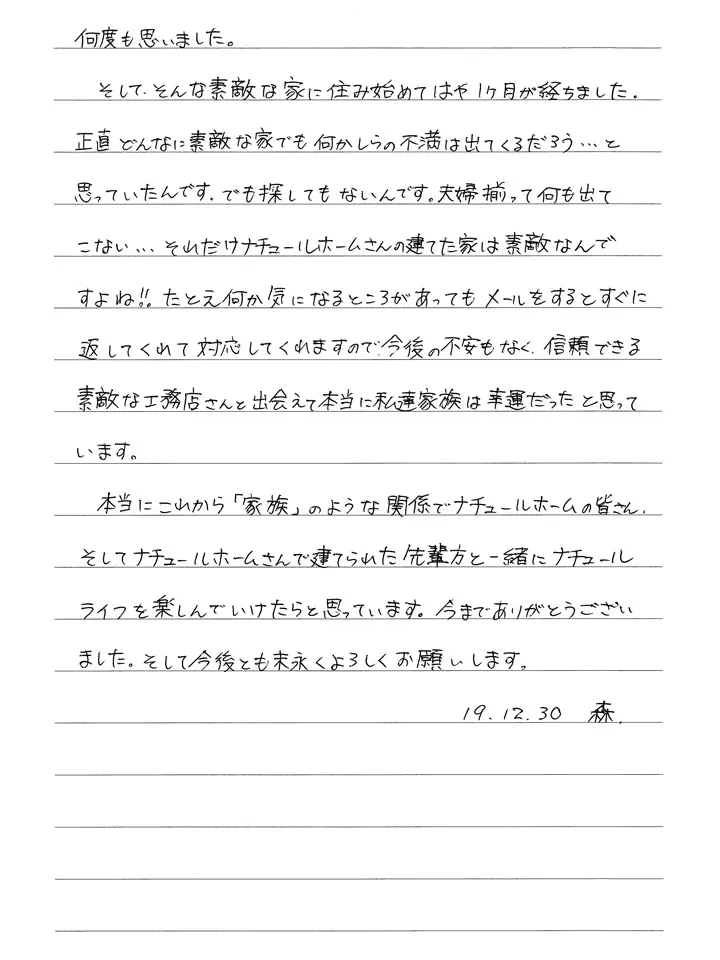 何度も思いました。
そして、そんな素敵な家に住み始めてはや1ヶ月が経ちました。
正直どんなに素敵な家でも何かしらの不満は出てくるだろう…と
思っていたんです。でも探してもないんです。夫婦揃って何も出て
こない…それだけナチュールホームさんの建てた家は素敵なんで
すよね!!たとえ何か気になるところがあってもメールをするとすぐに
返してくれて対応してくれますので、今後の不安もなく、信頼できる
素敵な工務店さんと出会えて本当に私達家族は幸運だったと思って
います。
本当にこれから「家族」のような関係でナチュールホームの皆さん、
そしてナチュールホームさんで建てられた先輩方と一緒にナチュール
ライフを楽しんでいけたらと思っています。今までありがとうござい
ました。そして今後とも末永くよろしくお願いします。
19.12.30 森.